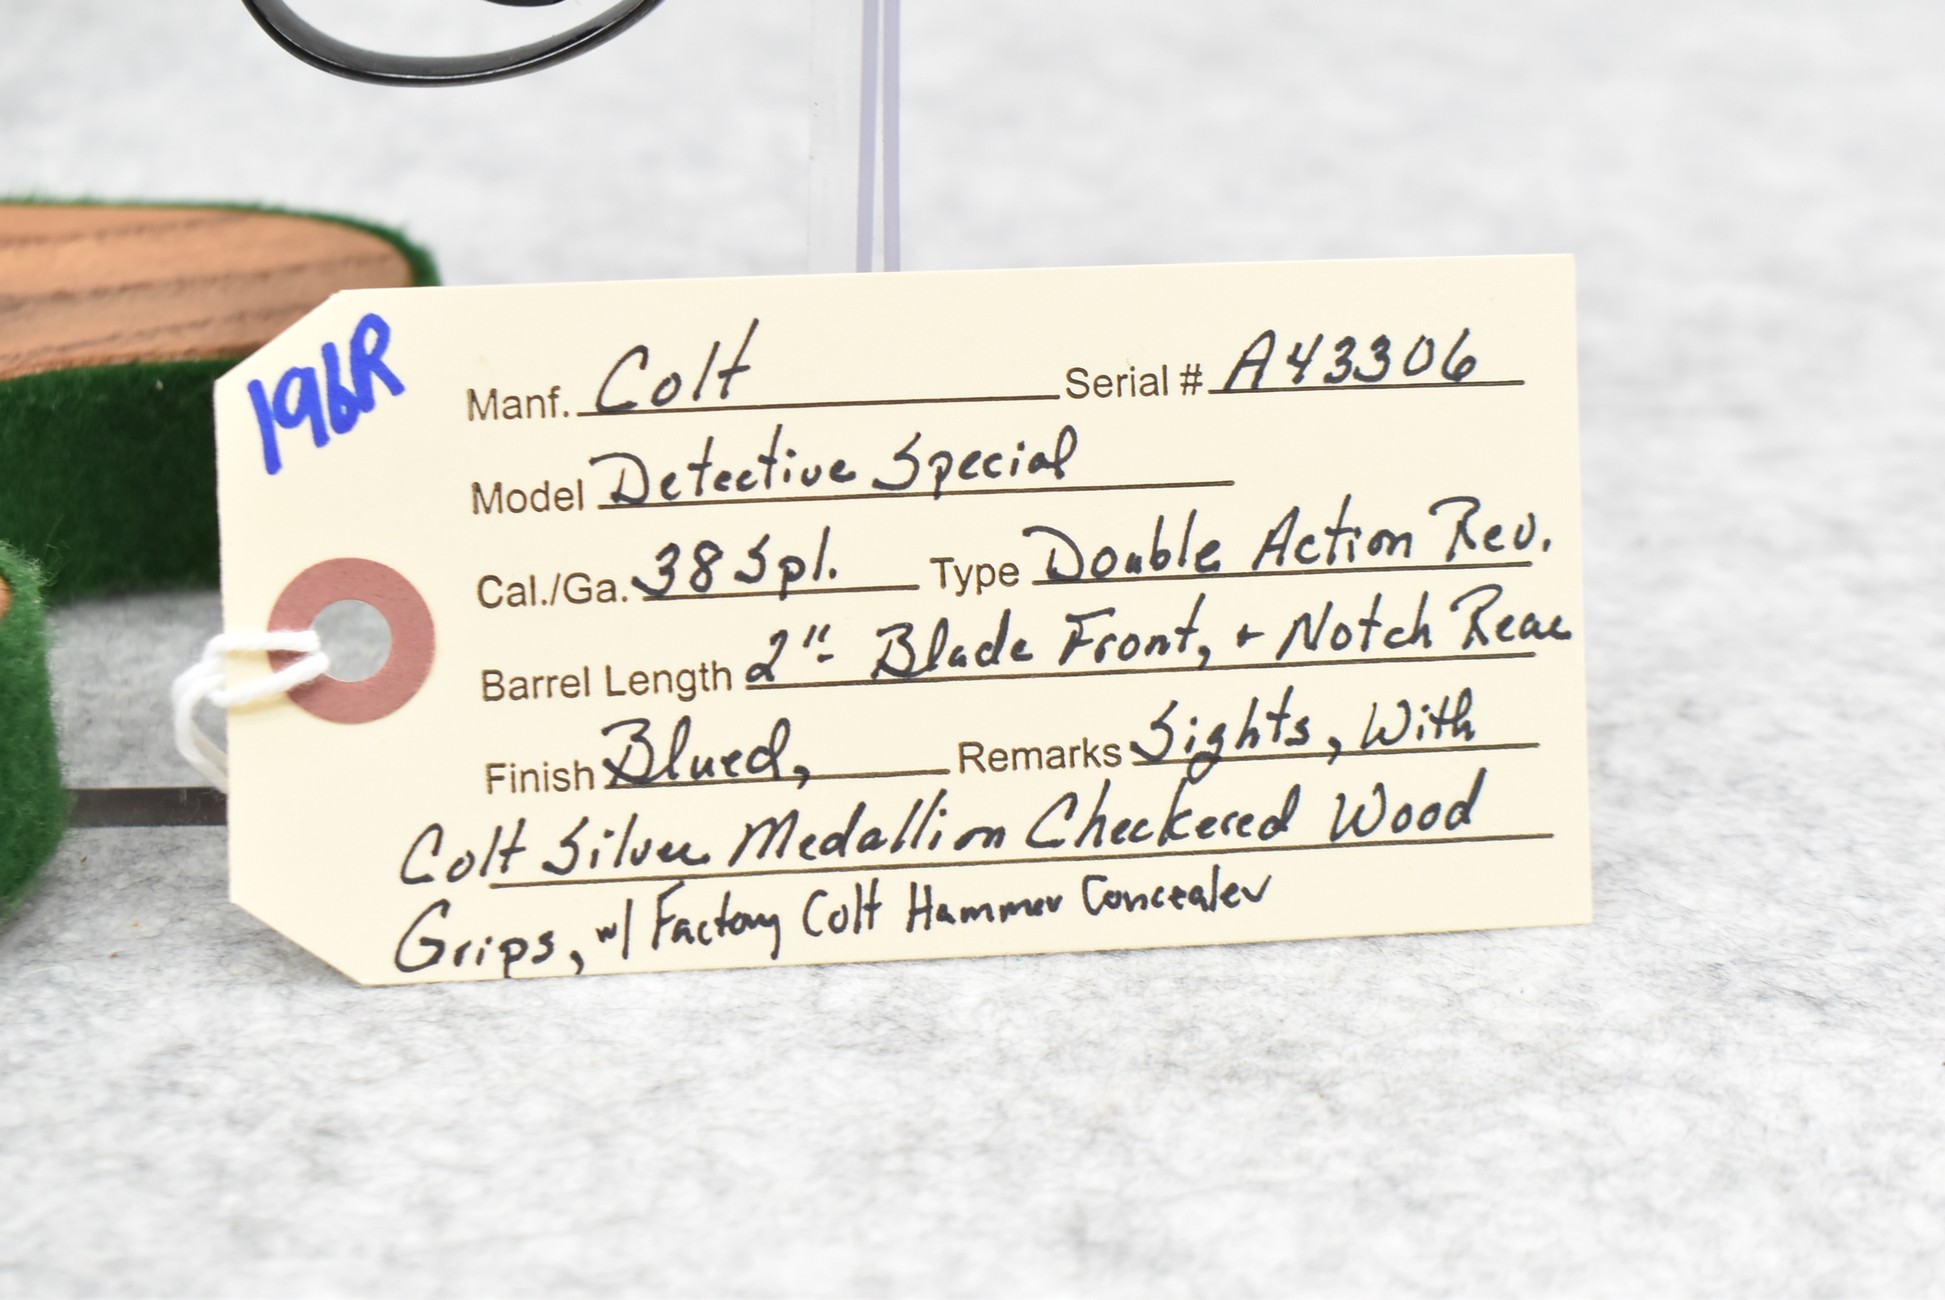 196R
Manf. Colt Serial # A43306
Model Detective Special
Cal./Ga. 38 Spl. Type Double Action Rev.
Barrel Length 2"- Blade Front, + Notch Rear
Finish Blued, Remarks Sights, With
Colt Silver Medallion Checkered Wood
Grips, w/ Factory Colt Hammer Concealer